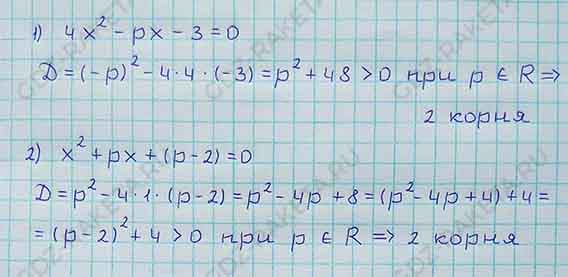 1) 4x² - px - 3 = 0
D = (-p)² - 4·4·(-3) = p² + 48 > 0 при p ∈ R =>
2 корня
2) x² + px + (p-2) = 0
D = p² - 4·1·(p-2) = p² - 4p + 8 = (p² - 4p + 4) + 4 =
= (p-2)² + 4 > 0 при p ∈ R => 2 корня